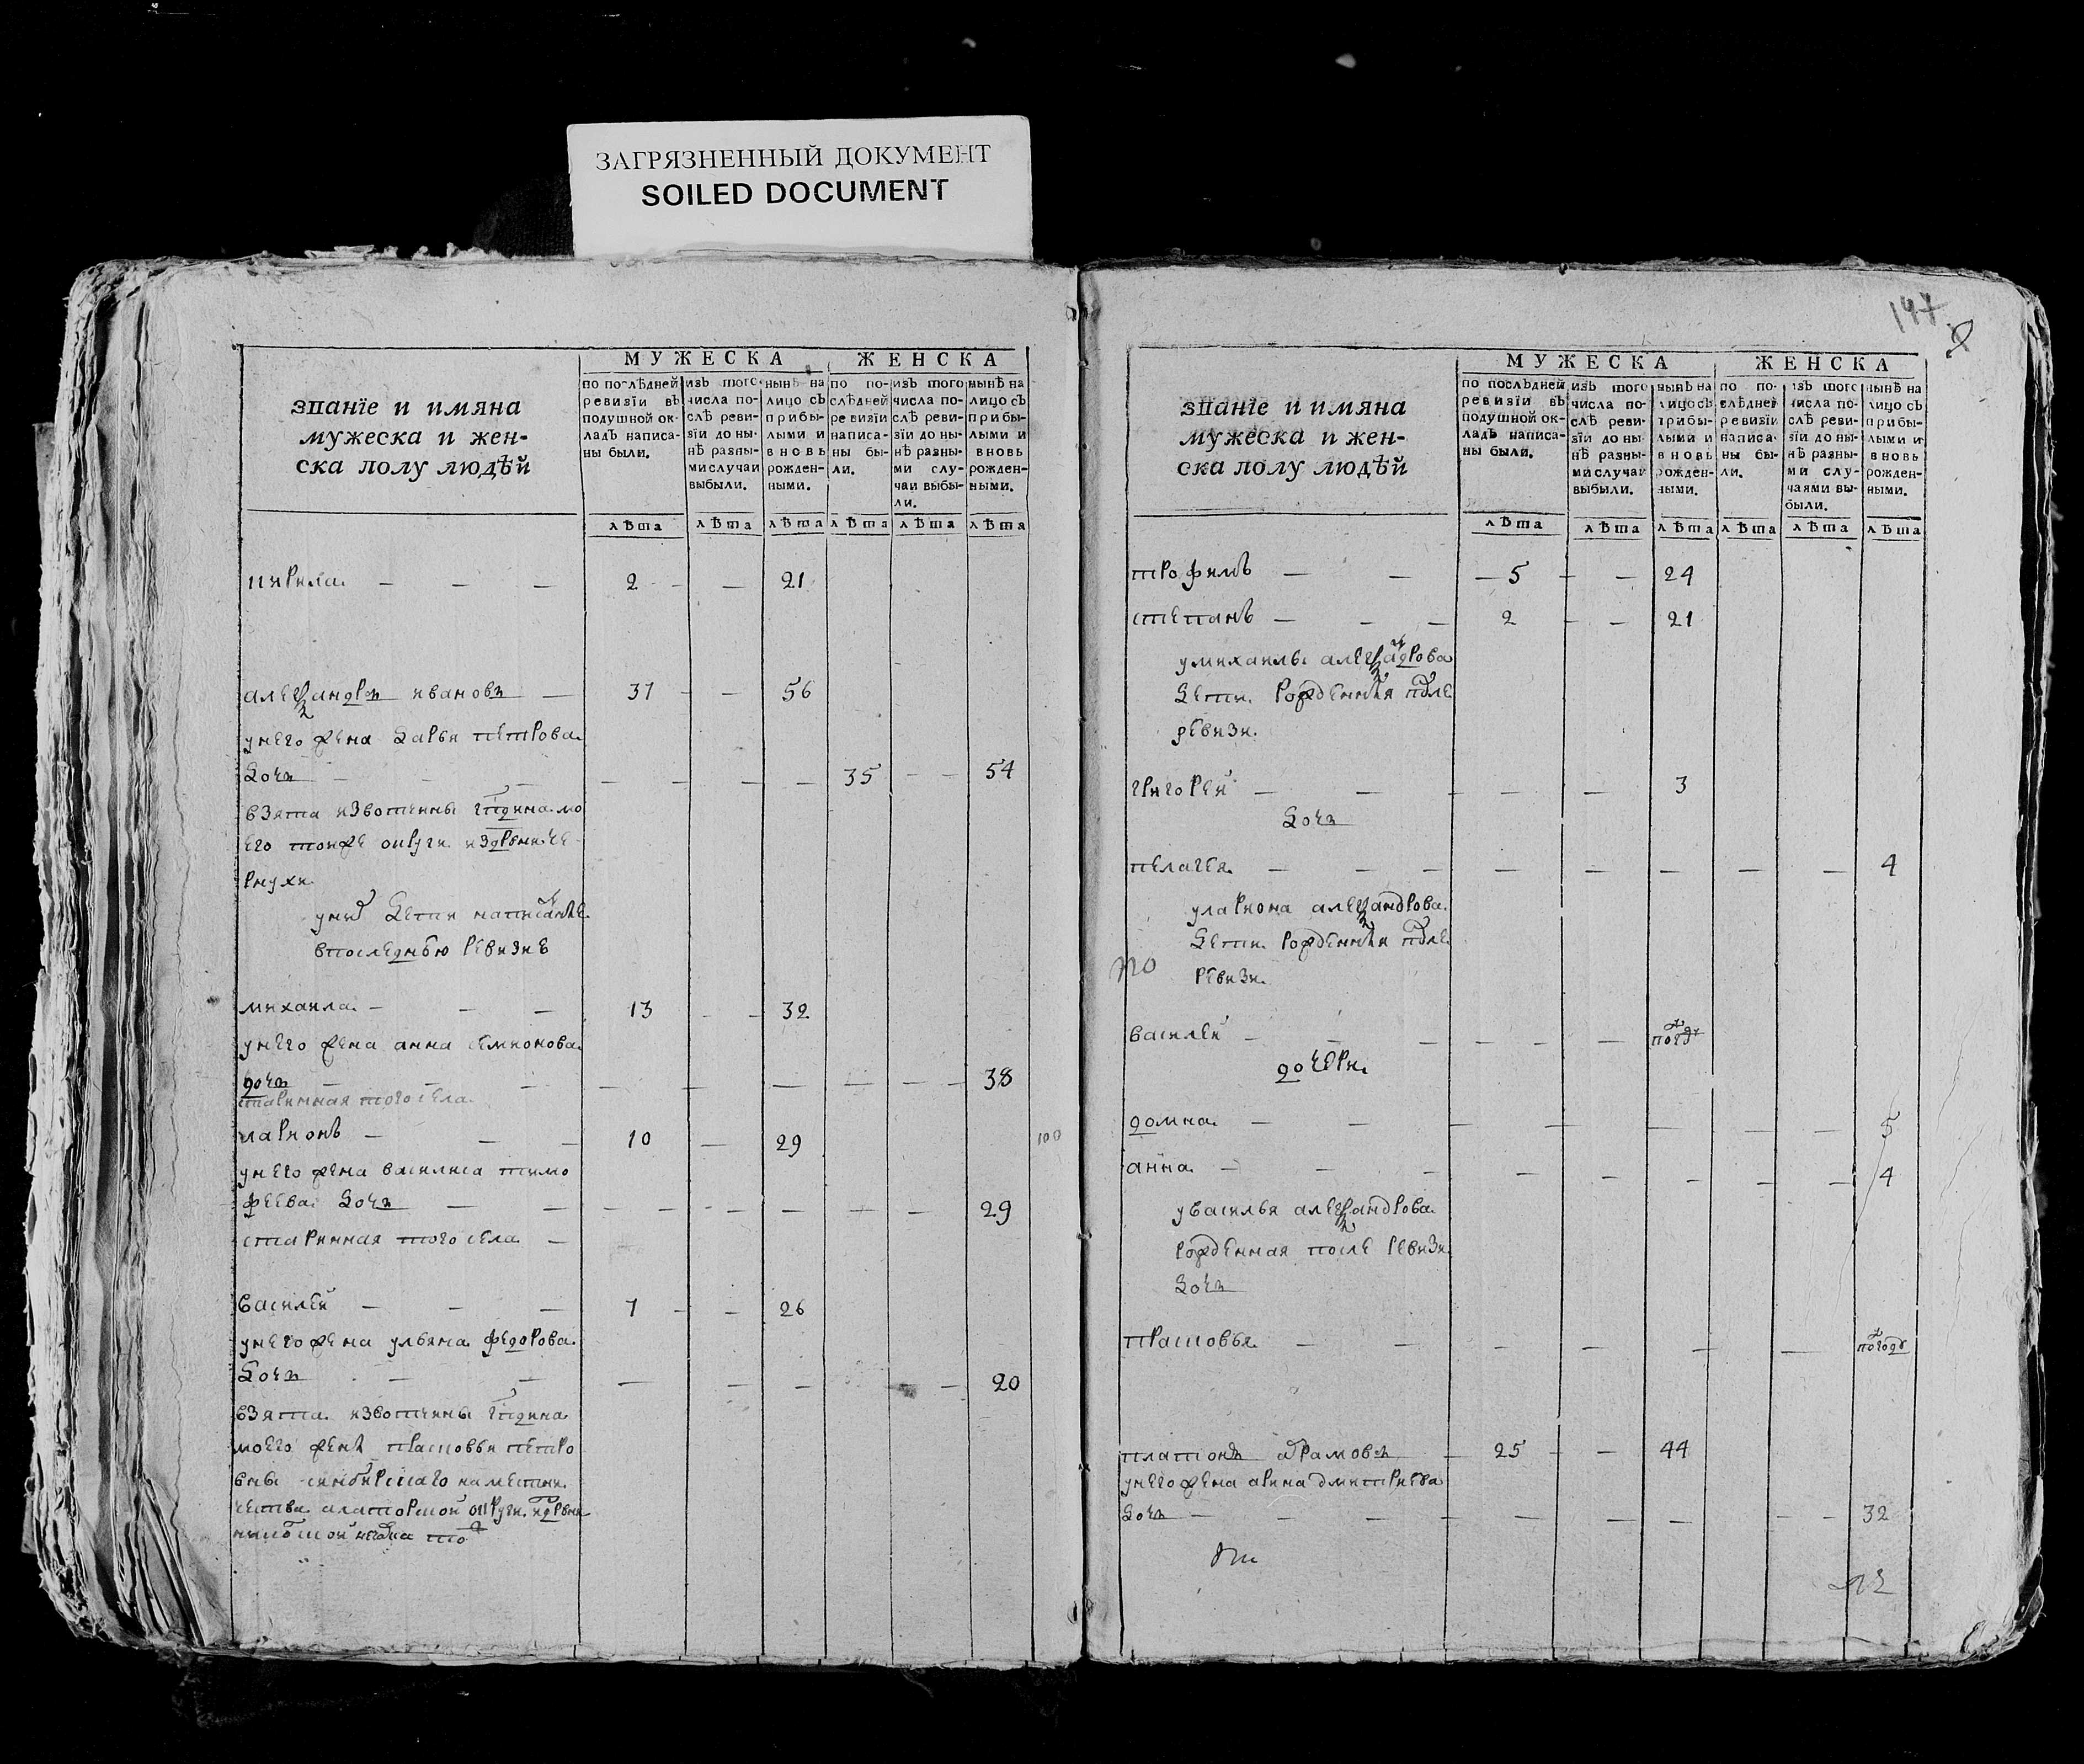 ЗАГРЯЗНЕННЫЙ ДОКУМЕНТ
SOILED DOCUMENT
МУЖЕСКА ЖЕНСКА
званїе и имяна
мужеска и жен-
ска полу людѣй
по послѣдней
ревизїи въ
подушной ок-
ладъ написа-
ны были.
изъ того
числа по-
слѣ реви-
зїи до ны-
нѣ разны-
ми случаи
выбыли.
нынѣ на
лицо съ
прибы-
лыми и
вновь
рожден-
ными.
по по-
слѣдней
ревизїи
написа-
ны бы-
ли.
изъ того
числа по-
слѣ реви-
зїи до ны-
нѣ разны-
ми слу-
чаи выбы-
ли.
нынѣ на
лицо съ
прибы-
лыми и
вновь
рожден-
ными.
лѣта лѣта лѣта лѣта лѣта лѣта
кирила 2 21
александръ ивановъ 37 56
унего жена дарья петрова
дочь 35 54
взята извотчины гпдина мо
его тойже округи издрвни че
рнухи
унихъ дети написаные
впоследнюю ревизие
михаила 13 32
унего жена анна семионова
дочь 38
старинная того села
ларионъ 10 29
100
унего жена василиса тимо
феева дочь 29
старинная того села
василей 7 26
унего жена ульяна федорова
дочь 20
взята извотчины гпдина
моего жены прасковьи петро
вны синбирскаго наместни
чества алаторской округи
147
МУЖЕСКА ЖЕНСКА
званїе и имяна
мужеска и жен-
ска полу людѣй
по послѣдней
ревизїи въ
подушной ок-
ладъ написа-
ны были.
изъ того
числа по-
слѣ реви-
зїи до ны-
нѣ разны-
ми случаи
выбыли.
нынѣ на
лицо съ
прибы-
лыми и
вновь
рожден-
ными.
по по-
слѣдней
ревизїи
написа-
ны бы-
ли.
изъ того
числа по-
слѣ реви-
зїи до ны-
нѣ разны-
ми слу-
чаями вы-
были.
нынѣ на
лицо съ
прибы-
лыми и
вновь
рожден-
ными.
лѣта лѣта лѣта лѣта лѣта лѣта
трофимъ 5 24
степанъ 2 21
умихаилы александрова
дети рожденныя после
ревизи
григорей 3
дочь
пелагея 4
улариона александрова
дети рожденныя после
ревизи
василей полгода
дочери
домна 5
анна 4
увасилья александрова
рожденная после ревизи
дочь
прасковья полгода
платонъ абрамовъ 25 44
унего жена арина дмитриева
дочь 32